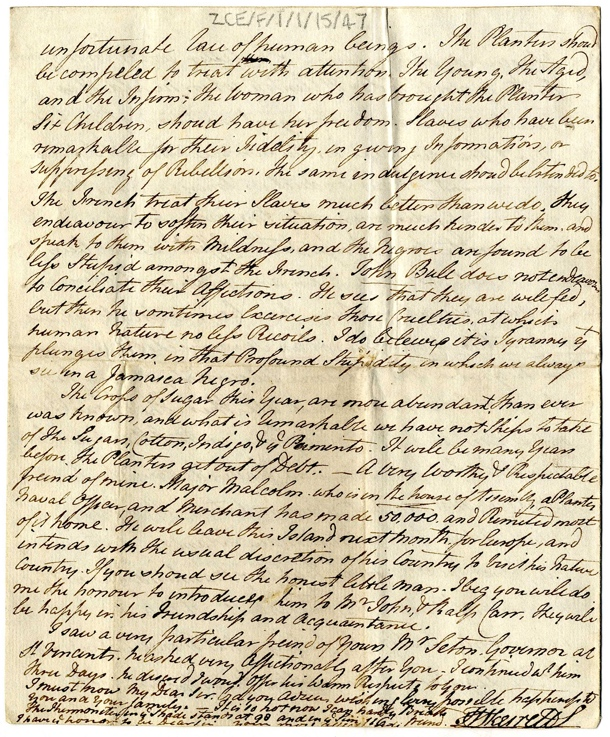 ZCE/F/1/1/15/47
unfortunate race of human beings. The Planters should
be compeled to treat with attention, The Young, The Aged,
and the Infirm; The Woman who has brought the Planter
Six Children, shoud have her freedom. Slaves who have been
remarkable for their Fidelity, in giving Information, or
Suppressing of Rebellion. The same indulgence should be extended to.
The French treat their Slaves much better than we do, they
endeavour to soften their situation, are much kinder to them, and
speak to them with Mildness, and the Negroes are found to be
less Stupid amongst the French. John Bull does not endeavour
to conciliate their Affections. He sees that they are well fed,
but then he sometimes Exercises those Cruelties, at which
human Nature no less Recoils. I do believe it is Tyranny yt
plunges them in that Profound Stupidity in which we always
see in a Jamaica Negro.
The Crops of Sugar this Year, are more abundant than ever
was known, and what is Remarkable we have not Ships to take
of The Sugar, Cotton, Indigo, & ye Pimento. It will be many Years
before the Planters get out of Debt. – A very Worthy & Respectable
freind of mine. Major Malcolm. who is in the house of Assembly, a Planter
Naval Officer, and Merchant has made 50,000. and Remited most
of it home. He will leave this Island next Month, for Europe, and
intends with the usual discretion of his Country to visit his Native
Country. If you should see the honest little man. I beg you will do
me the honour to introduce him to Mr John, & Ralph Carr, they will
be happy in his Freindship and Acquaintance.
I saw a very particular freind of Yours Mr Seton. Governor at
St Vincents. he asked very Affectionately after You – I continued wt him
three Days. he desired I wou'd offer his Warm Respects to You.
I must now My Dear Sir. bid you Adieu, wishing every possible happiness to
you and your family. It is so hot now I can hardly
The Thermometer in ye Shade stands at 98 and in ye Sun
I have ye honor to be